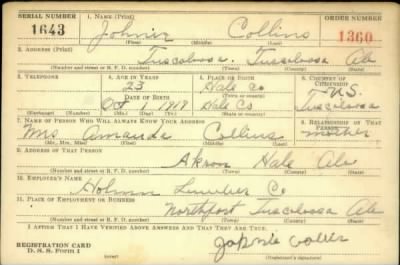 SERIAL NUMBER 1. NAME (Print) ORDER NUMBER
1643 Johnie Collins 1360
(First) (Middle) (Last)
2. ADDRESS (Print)
Tuscaloosa. Tuscaloosa Ala
(Number and street or R. F. D. number) (Town) (County) (State)
3. TELEPHONE 4. AGE IN YEARS 5. PLACE OF BIRTH 6. COUNTRY OF CITIZENSHIP
23 Hale Co U.S.
DATE OF BIRTH (Town or county)
Oct 1918 Hale Co Tuscaloosa
(Exchange) (Number) (Mo.) (Day) (Yr.) (State or country)
7. NAME OF PERSON WHO WILL ALWAYS KNOW YOUR ADDRESS 8. RELATIONSHIP OF THAT PERSON
Mrs Amanda Collins mother
(Mr., Mrs., Miss) (First) (Middle) (Last)
9. ADDRESS OF THAT PERSON
Akron Hale Ala
(Number and street or R. F. D. number) (Town) (County) (State)
10. EMPLOYER'S NAME
Holman Lumber Co
11. PLACE OF EMPLOYMENT OR BUSINESS
Northport Tuscaloosa Ala
(Number and street or R. F. D. number) (Town) (County) (State)
I AFFIRM THAT I HAVE VERIFIED ABOVE ANSWERS AND THAT THEY ARE TRUE.
REGISTRATION CARD
D. S. S. Form 1
(Registrant's signature)